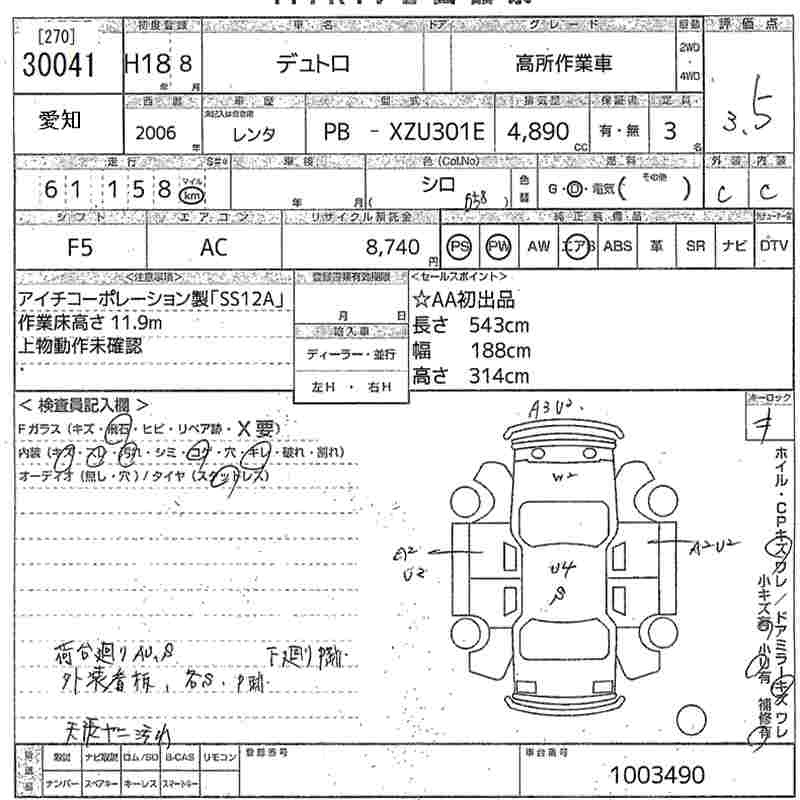 [270]
30041
初度登録
車名
ドア
グレード
駆動
評価点
H18 8
年 月
デュトロ
高所作業車
2WD
・
4WD
3.5
愛知
西暦
車歴
型式
排気量
保証書
定員
2006
年
レンタ
PB - XZU301E
4,890
CC
有・無
3
名
走行
車検
色(Col.No)
燃料
外装
内装
61 158
マイル
km
年 月
シロ
( 058 )
色替
G・D・電気( その他 )
C
C
シフト
エアコン
リサイクル預託金
純正装備品
F5
AC
8,740
円
PS
PW
AW
エアB
ABS
革
SR
ナビ
DTV
<注意事項>
登録書類有効期限
<セールスポイント>
アイチコーポレーション製「SS12A」
作業床高さ 11.9m
上物動作未確認
月 日
輸入車
ディーラー・並行
左H ・ 右H
☆AA初出品
長さ 543cm
幅 188cm
高さ 314cm
キーロック
キ
< 検査員記入欄 >
Fガラス(キズ・飛石・ヒビ・リペア跡・X要)
内装(キズ・スレ・汚れ・シミ・コゲ・穴・キレ・破れ・割れ)
オーディオ(無し・穴)/タイヤ(スタッドレス)
A3 U2
W2
A2
U2
A2U2
U4
S
ホイル・CPキズワレ/ドアミラーキズワレ
小キズ有 小U有 補修有
荷台廻りAU,S
下廻りP跡
外装看板、各S.P跡
天張ヤニ汚れ
取説
ナビ取説
ロム/SD
B-CAS
リモコン
ナンバー
スペアキー
キーレス
スマートキー
登録番号
車台番号
1003490